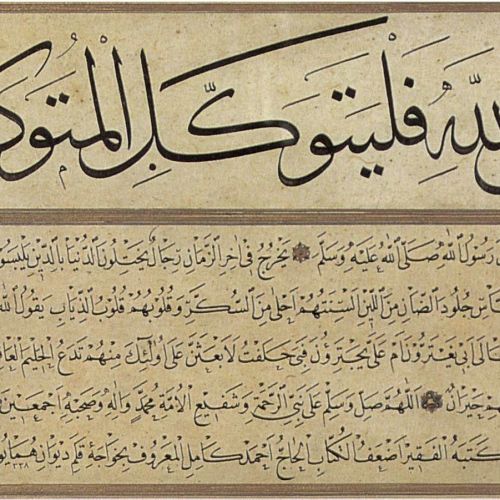 اللّٰهِ فَلْيَتَوَكَّلِ الْمُتَوَكـ
رَسُولُ اللهِ صَلَّى اللهُ عَلَيْهِ وَسَلَّمَ يَخْرُجُ فِى اٰخِرِ الزَّمَانِ رِجَالٌ يَخْتِلُونَ الدُّنْيَا بِالدِّينِ يَلْبَسُو
جُلُودَ الضَّاْنِ مِنَ اللِّينِ اَلْسِنَتُهُمْ اَحْلٰى مِنَ السُّكَّرِ وَقُلُوبُهُمْ قُلُوبُ الذِّيَابِ يَقُولُ اللهُ
اَبِى تَغْتَرُّونَ اَمْ عَلَىَّ يَجْتَرِؤُنَ فَبِى حَلَفْتُ لَاَبْعَثَنَّ عَلٰى اُولٰئِكَ مِنْهُمْ تَدَعُ الْحَلِيمَ
حَيْرَانَ اَللّٰهُمَّ صَلِّ وَسَلِّمْ عَلٰى نَبِىِّ الرَّحْمَةِ وَشَفِيعِ الْاُمَّةِ مُحَمَّدٍ وَاٰلِهِ وَصَحْبِهِ اَجْمَعِينَ
كَتَبَهُ الْفَقِيرُ اَضْعَفُ الْكُتَّابِ الْحَاجُّ اَحْمَدُ كَامِلُ الْمَعْرُوفُ بِخَوَاجَهٴِ قَلَمِ دِيوَانِ هُمَايُو ٣٣٨